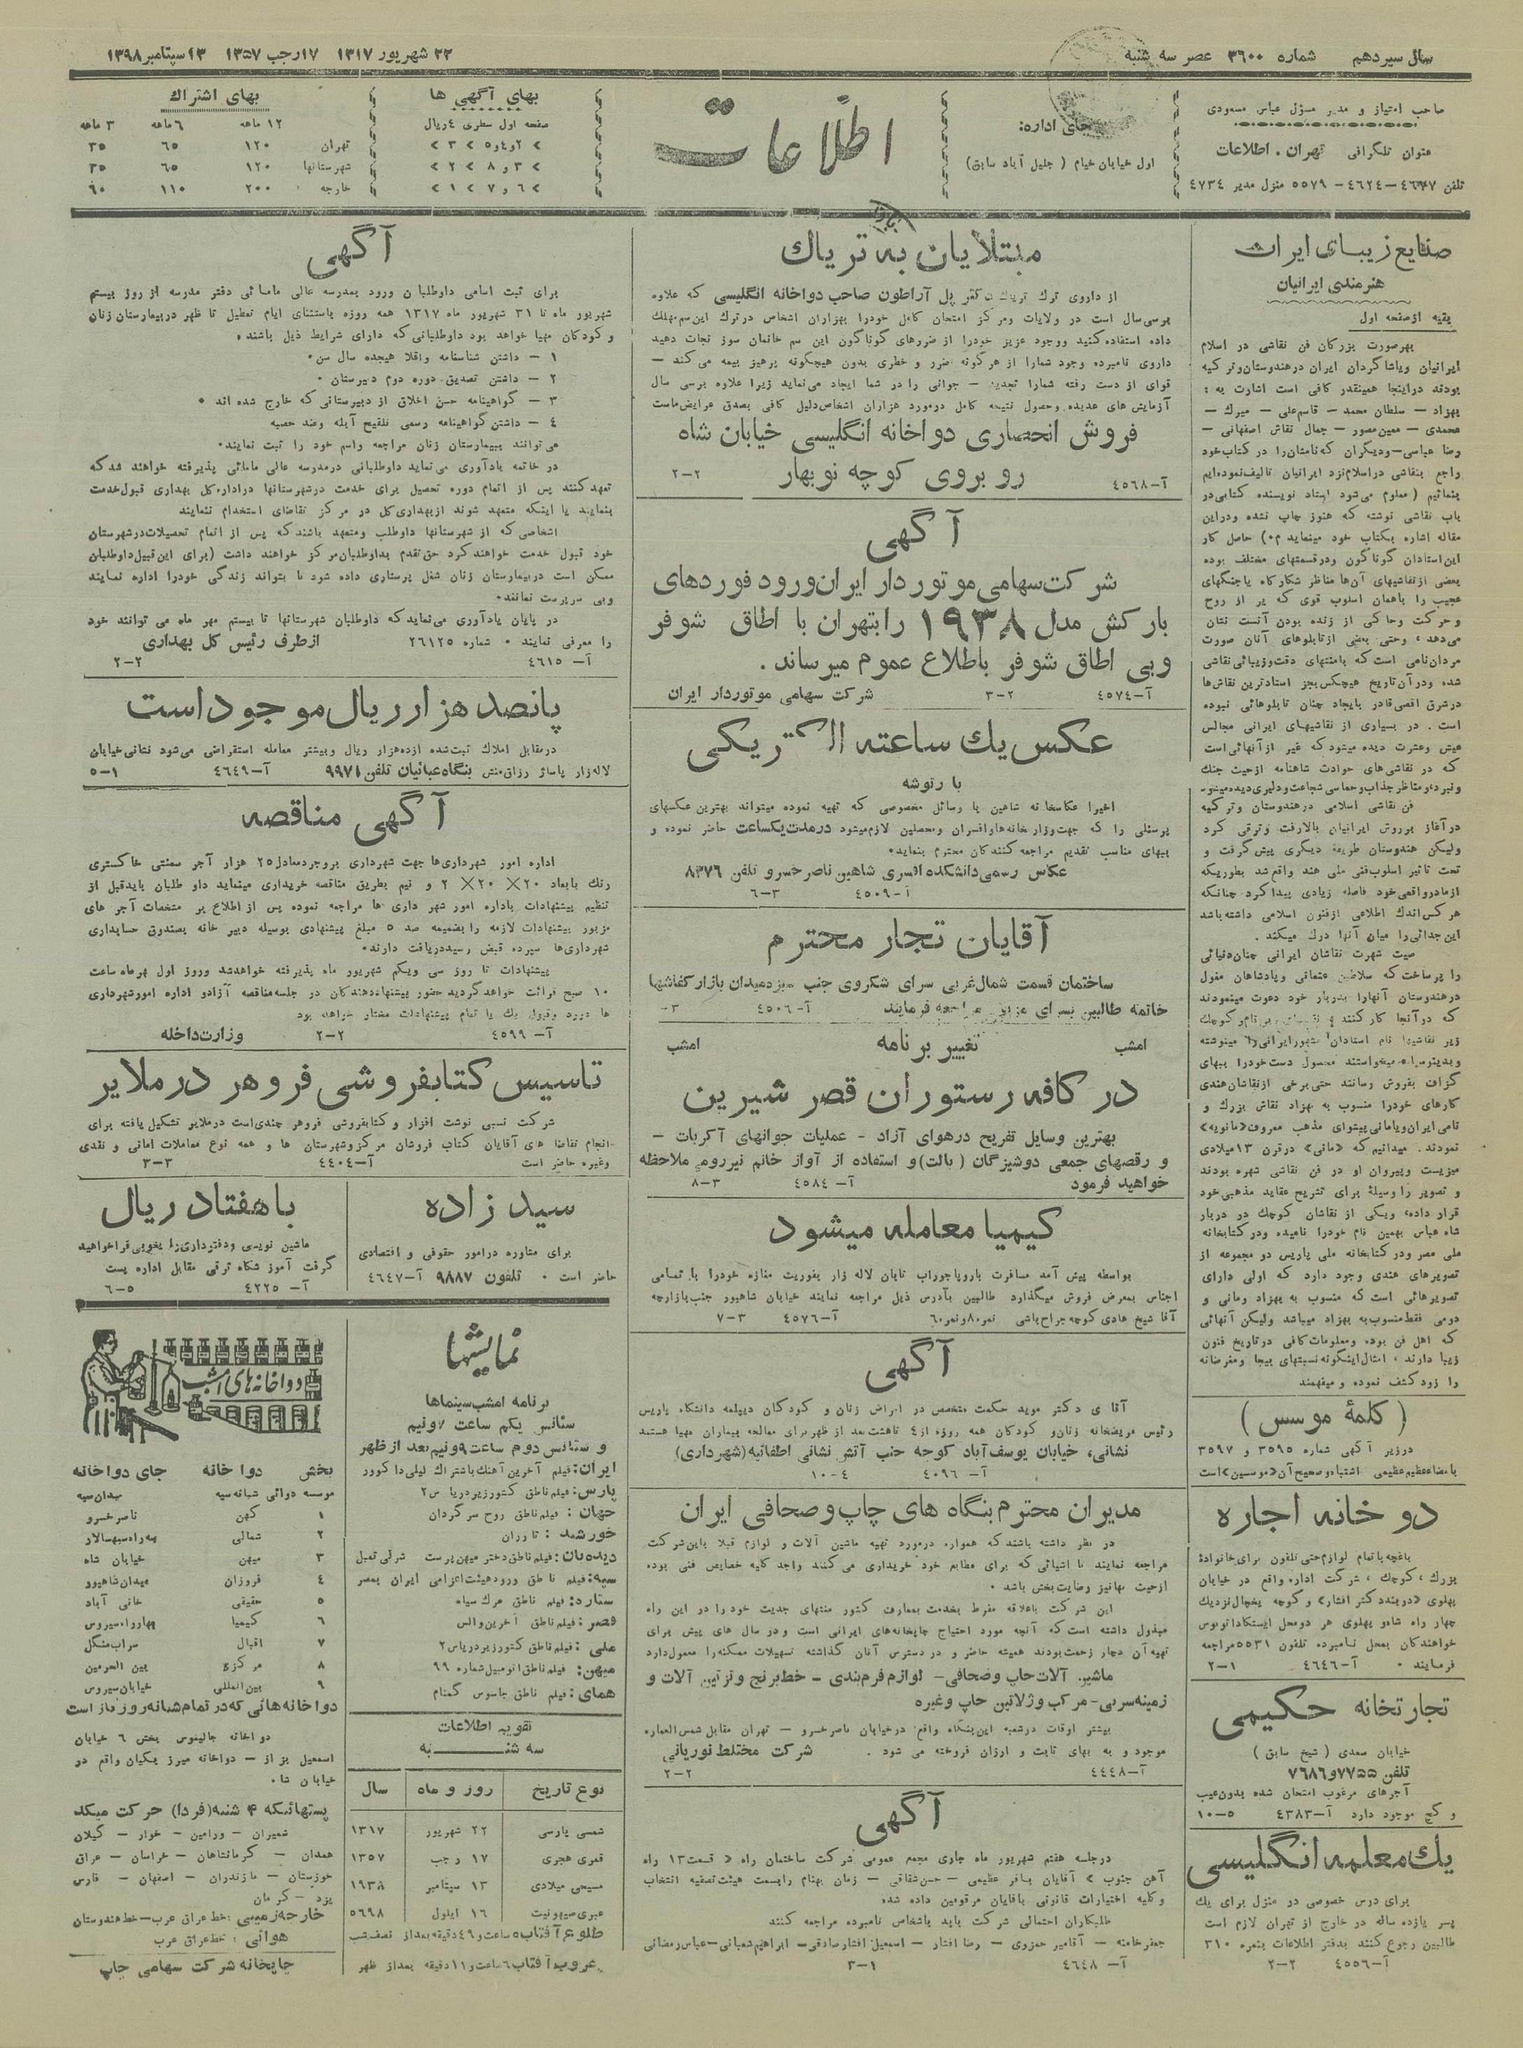 سال سیزدهم شماره ۳۶۰۰ عصر سه شنبه
۲۲ شهریور ۱۳۱۷ ۱۷ رجب ۱۳۵۷ ۱۳ سپتامبر ۱۳۹۸
صاحب امتیاز و مدیر مسؤل عباس مسعودی
عنوان تلگرافی تهران . اطلاعات
منزل مدیر ٤٧٣٤
جای اداره:
اول خیابان خیام ( جلیل آباد سابق )
اطلاعات
بهای آگهی ها
صفحه اول سطری ٤ ریال
بهای اشتراك
۱۲ ماهه ٦ ماهه ۳ ماهه
تهران ۱۲۰ ٦٥ ۳٥
شهرستانها ۱۲۰ ٦٥ ۳٥
خارجه ۲۰۰ ۱۱۰ ٦۰
صنایع زیبای ایران
هنرمندی ایرانیان
بقیه از صفحه اول
بهرصورت بزرگان فن نقاشی در اسلام
ایرانیان ویاشاگردان ایران درهندوستان وترکیه
بودند دراینجا همینقدر کافی است اشارت به :
بهزاد – سلطان محمد – قاسم علی – میرك –
محمدی – معین مصور – جمال نقاش اصفهانی –
رضا عباسی – ودیگران که نامشان را در کتاب خود
راجع بنقاشی در اسلام نزد ایرانیان تالیف نموده ایم
بنمائیم ( معلوم می شود استاد نویسنده کتابی در
باب نقاشی نوشته که هنوز چاپ نشده ودراین
مقاله اشاره بکتاب خود مینماید م۰) حاصل کار
این استادان گوناگون ودرقسمتهای مختلف بوده
بعضی از نقاشیهای آن ها مناظر شکارگاه یا جنگهای
عجیب را باهمان اسلوب قوی که پر از روح
و حرکت وحاکی از زنده بودن آنست نشان
می دهد ، وحتی بعضی از تابلوهای آنان صورت
مردان نامی است که بامنتهای دقت وزیبائی نقاشی
شده ودرآن تاریخ هیچکس بجز استادترین نقاش ها
درشرق اقصی قادر بایجاد چنان تابلوهائی نبوده
است . در بسیاری از نقاشیهای ایرانی مجالس
عیش وعشرت دیده میشود که غیر از آنهائی است
که در نقاشی های حوادث شاهنامه ازحیث جنك
ونبرد ، ومناظر جذاب وحماسی شجاعت ودلیری دیده میشود
فن نقاشی اسلامی درهندوستان وترکیه
درآغاز برروش ایرانیان بالارفت وترقی کرد
ولیکن هندوستان طریقه دیگری پیش گرفت و
تحت تاثیر اسلوب فنی ملی هند واقع شد بطوریکه
ازمادر واقعی خود فاصله زیادی پیدا کرد چنانکه
هرکس اندك اطلاعی ازفنون اسلامی داشته باشد
این جدائی را میان آنها درك میکند .
صیت شهرت نقاشان ایرانی چنان دنیائی
را پرساخت که سلاطین عثمانی وپادشاهان مغول
درهندوستان آنهارا بدربار خود دعوت مینمودند
گزاف بفروش رسانند حتی برخی ازنقاشان هندی
کارهای خودرا منسوب به بهزاد نقاش بزرك و
نامی ایران ویامانی پیشوای مذهب معروف «مانویه»
نمودند. میدانیم که «مانی» درقرن ۱۳ میلادی
میزیست وپیروان او در فن نقاشی شهره بودند
و تصویر را وسیلهٔ برای تشریح عقاید مذهبی خود
قرار داده ، ویکی از نقاشان کوچك در دربار
شاه عباس بهمین نام خودرا نامیده ودر کتابخانه
ملی مصر ودر کتابخانه ملی پاریس دو مجموعه از
تصویرهای هندی وجود دارد که اولی دارای
تصویرهائی است که منسوب به بهزاد ومانی و
دومی فقط منسوب به بهزاد میباشد ولیکن آنهائی
که اهل فن بوده ومعلومات کافی درتاریخ فنون
زیبا دارند ، امثال اینگونه نسبتهای بیجا ومغرضانه
را زود کشف نموده و میفهمند
( کلمهٔ موسس )
درزیر آگهی شماره ۳٥۹٥ و ۳٥۹۷
بامضاء عظیم عظیمی اشتباه و صحیح آن «موسسین» است
دو خانه اجاره
باغچه باتمام لوازم حتی تلفون برای خانوادهٔ
بزرك ، کوچك ، شرکت اداره واقع در خیابان
پهلوی «دربند دکتر افشار» و کوچه یخچال نزدیك
چهار راه شاه و پهلوی هر دو محل ایستگاه اتوبوس
خواهندگان بمحل نامبرده تلفون ٥٥۳۱ مراجعه
فرمایند ۰ آ – ٤٦٤٦ ۱–۲
تجارتخانه حکیمی
خیابان سعدی ( شیخ سابق )
تلفن ۷۷۵۵ و ۷۶۸۶
آجرهای مرغوب امتحان شده بدون عیب
و گچ موجود دارد آ – ٤۳۸۳ ٥–۱۰
یك معلمه انگلیسی
برای درس خصوصی در منزل برای یك
پسر یازده ساله در خارج از تهران لازم است
طالبین رجوع کنند بدفتر اطلاعات بنمره ۳۱۰
آ – ٤٥٥٦ ۲–۲
مبتلایان به تریاك
از داروی ترك تریاك دکتر پل آراطون صاحب دواخانه انگلیسی که علاوه
برسی سال است در ولایات ومرکز امتحان کامل خودرا بهزاران اشخاص درترك این سم مهلك
داده استفاده کنید ووجود عزیز خودرا از ضررهای گوناگون این سم خانمان سوز نجات دهید
داروی نامبرده وجود شمارا از هرگونه ضرر و خطری بدون هیچگونه پرهیز بیمه می کند –
قوای از دست رفته شمارا تجدید – جوانی را در شما ایجاد می نماید زیرا علاوه برسی سال
آزمایش های عدیده وحصول نتیجه کامل درمورد هزاران اشخاص دلیل کافی بصدق عرایض ماست
فروش انحصاری دواخانه انگلیسی خیابان شاه
رو بروی کوچه نوبهار
آ – ٤٥٦۸ ۲–۲
آگهی
شرکت سهامی موتوردار ایران ورود فوردهای
بارکش مدل ۱۹۳۸ را بتهران با اطاق شوفر
وبی اطاق شوفر باطلاع عموم میرساند .
آ – ٤٥۷٤ ۲–۳ شرکت سهامی موتوردار ایران
عکس یك ساعته الکتریکی
با رتوشه
اخیرا عکاسخانه شاهین با وسائل مخصوصی که تهیه نموده میتواند بهترین عکسهای
پرسنلی را که جهت وزارتخانه ها و افسران ومحصلین لازم میشود درمدت یکساعت حاضر نموده و
ببهای مناسب تقدیم مراجعه کنندکان محترم بنماید۰
عکاس رسمی دانشکده افسری شاهین ناصر خسرو تلفن ۸۳۷۶
آ – ٤٥۰۹ ۳–٦
آقایان تجار محترم
ساختمان قسمت شمال غربی سرای شکروی جنب سبزه میدان بازار کفاشها
آ – ٤٥۰٦
امشب تغییر برنامه امشب
در کافه رستوران قصر شیرین
بهترین وسایل تفریح درهوای آزاد – عملیات جوانهای آکربات –
و رقصهای جمعی دوشیزگان ( بالت ) و استفاده از آواز خانم نیرروم ملاحظه
خواهید فرمود آ – ٤٥۸٤ ۳–۸
کیمیا معامله میشود
بواسطه پیش آمد مسافرت باروپا جوراب تابان لاله زار بفوریت مغازه خودرا با تمامی
اجناس بمعرض فروش میگذارد طالبین بآدرس ذیل مراجعه نمایند خیابان شاهپور جنب بازارچه
آقا شیخ هادی کوچه جراح باشی نمره ۸ و نمره ٦۰ آ – ٤٥۷٦ ۳–۷
آگهی
آقا ی دکتر موید حکمت متخصص در امراض زنان و کودکان دیپلمه دانشگاه پاریس
نشانی، خیابان یوسف آباد کوچه جنب آتش نشانی اطفائیه (شهرداری)
آ – ٤۰۹٦ ٤–۱۰
مدیران محترم بنگاه های چاپ و صحافی ایران
در نظر داشته باشند که همواره درمورد تهیه ماشین آلات و لوازم قبلا باین شرکت
مراجعه نمایند تا اشیائی که برای مطابع خود خریداری می کنند واجد کلیه خصایص فنی بوده
ازحیث بها نیز رضایت بخش باشد ۰
این شرکت باعلاقه مفرط بخدمت بمعارف کشور منتهای جدیت خود را در این راه
مبذول داشته است که آنچه مورد احتیاج چاپخانه های ایرانی است ودر سال های پیش برای
تهیه آن دچار زحمت بودند همیشه حاضر و در دسترس آنان گذاشته تسهیلات ممکنه را معمول دارد
ماشین آلات چاپ وصحافی – لوازم فرم بندی – خط برنج وتزئین آلات و
زمینه سربی – مرکب و ژلاتین چاپ وغیره
بیشتر اوقات درشعبه این بنگاه واقع در خیابان ناصر خسرو – تهران مقابل شمس العماره
موجود و به بهای ثابت و ارزان فروخته می شود . شرکت مختلط نوریانی
آ – ٤٤٤۸ ۲–۲
آگهی
درجلسه هفتم شهریور ماه جاری مجمع عمومی شرکت ساختمان راه « قسمت ۱۳ راه
آهن جنوب » آقایان باقر عظیمی – حسن شقاقی – زمان بهنام رابسمت هیئت تصفیه انتخاب
وکلیه اختیارات قانونی باقایان مرقومین داده شده
طلبکاران احتمالی شرکت باید باشخاص نامبرده مراجعه کنند
جعفر خامنه – آقامیر حمزوی – رضا افشار – اسمعیل افشار صادقی – ابراهیم شعبانی – عباس رمضانی
آ – ٤٦٤۸ ۱–۳
آگهی
برای ثبت اسامی داوطلبان ورود بمدرسه عالی مامائی دفتر مدرسه از روز بیستم
شهریور ماه تا ۳۱ شهریور ماه ۱۳۱۷ همه روزه باستثنای ایام تعطیل تا ظهر در بیمارستان زنان
و کودکان مهیا خواهد بود داوطلبانی که دارای شرایط ذیل باشند۰
۱ – داشتن شناسنامه واقلا هیجده سال سن۰
۲ – داشتن تصدیق دوره دوم دبیرستان ۰
۳ – گواهینامه حسن اخلاق از دبیرستانی که خارج شده اند ۰
٤ – داشتن گواهینامه رسمی تلقیح آبله وضد حصبه
می توانند ببیمارستان زنان مراجعه واسم خود را ثبت نمایند۰
در خاتمه یادآوری می نماید داوطلبانی درمدرسه عالی مامائی پذیرفته خواهند شد که
تعهد کنند پس از اتمام دوره تحصیل برای خدمت درشهرستانها دراداره کل بهداری قبول خدمت
بنمایند یا اینکه متعهد شوند ازبهداری کل در مرکز تقاضای استخدام ننمایند
اشخاصی که از شهرستانها داوطلب ومتعهد باشند که پس از اتمام تحصیلات درشهرستان
خود قبول خدمت خواهند کرد حق تقدم بداوطلبان مرکز خواهند داشت (برای این قبیل داوطلبان
ممکن است دربیمارستان زنان شغل پرستاری داده شود تا بتواند زندگی خودرا اداره نمایند
وبی سرپرست نمانند۰
در پایان یادآوری می نماید که داوطلبان شهرستانها تا بیستم مهر ماه می توانند خود
را معرفی نمایند ۰ شماره ۲٦۱۲٥ ازطرف رئیس کل بهداری
آ – ٤٦۱٥ ۲–۲
پانصد هزار ریال موجود است
درمقابل املاك ثبت شده ازده هزار ریال وبیشتر معامله استقراضی می شود نشانی خیابان
لاله زار پاساژ رزاق منش بنگاه عباثیان تلفن ۹۹۷۱ آ – ٤٦٤۹ ۱–٥
آگهی مناقصه
اداره امور شهرداری ها جهت شهرداری بروجرد معادل ۲٥ هزار آجر سمنتی خاکستری
رنك بابعاد ۲۰ × ۲۰ × ۲ و نیم بطریق مناقصه خریداری مینماید داو طلبان باید قبل از
تنظیم پیشنهادات باداره امور شهر داری ها مراجعه نموده پس از اطلاع بر مشخصات آجر های
مزبور پیشنهادات لازمه را بضمیمه صد ٥ مبلغ پیشنهادی بوسیله دبیر خانه بصندوق حسابداری
شهرداری ها سپرده قبض رسید دریافت دارند۰
پیشنهادات تا روز سی ویکم شهریور ماه پذیرفته خواهد شد وروز اول مهر ماه ساعت
۱۰ صبح قرائت خواهد گردید حضور پیشنهاد دهندکان در جلسه مناقصه آزاد و اداره امور شهرداری
ها در رد وقبول یك یا تمام پیشنهادات مختار خواهد بود
آ – ٤٥۹۹ ۲–۲ وزارت داخله
تاسیس کتابفروشی فروهر در ملایر
شرکت نسبی نوشت افزار و کتابفروشی فروهر چندی است درملایر تشکیل یافته برای
انجام تقاضا های آقایان کتاب فروشان مرکز وشهرستان ها و همه نوع معاملات امانی و نقدی
وغیره حاضر است آ – ٤٤۰٤ ۳–۳
سید زاده
برای مشاوره درامور حقوقی و اقتصادی
حاضر است ۰ تلفون ۹۸۸۷ آ – ٤٦٤۷
باهفتاد ریال
ماشین نویسی ودفترداری را بخوبی فراخواهید
گرفت آموزشگاه ترقی مقابل اداره پست
آ – ٤۲۲٥ ٥–٦
نمایشها
برنامه امشب سینماها
سئانس یکم ساعت ۷ ونیم
و سئانس دوم ساعت ۹ ونیم بعد از ظهر
ایران: فیلم آخرین آهنك باشتراك لیلی داگوور
پارس: فیلم ناطق کنتور زیر دریا س۲
جهان : فیلم ناطق روح سرگردان
خورشید : تارزان
دیده بان : فیلم ناطق دختر میهن پرست شرلی تمبل
سپه: فیلم ناطق ورود هیئت اعزامی ایران بمصر
ستاره: فیلم ناطق مرك سیاه
قصر: فیلم ناطق آخرین والس
ملی: فیلم ناطق کنتور زیر دریا س۲
میهن: فیلم ناطق اتومبیل شماره ۹۹
همای: فیلم ناطق جاسوس گمنام
تقویم اطلاعات
سه شنبه
نوع تاریخ روز و ماه سال
شمسی پارسی ۲۲ شهریور ۱۳۱۷
قمری هجری ۱۷ رجب ۱۳٥۷
مسیحی میلادی ۱۳ سپتامبر ۱۹۳۸
عبری صیهونیت ۱٦ ایلول ٥٦۹۸
طلوع آفتاب ٥ ساعت و ٤۹ دقیقه بعد از نصف شب
غروب آفتاب ٦ ساعت و ۱۱ دقیقه بعد از ظهر
دواخانه های امشب
بخش دوا خانه جای دواخانه
موسسه دوائی شبانه سپه میدان سپه
۱ کهن ناصر خسرو
۲ شمالی سه راه سپهسالار
۳ میهن خیابان شاه
٤ فروزان میدان شاهپور
٥ حقیقی خانی آباد
٦ کیمیا چهار راه سیروس
۷ اقبال سراب منگل
۸ مرکزی بین الحرمین
۹ بین المللی خیابان سیروس
دواخانه هائی که در تمام شبانه روز باز است
دواخانه جالینوس بخش ٦ خیابان
اسمعیل بزاز – دواخانه میرزیکیان واقع در
خیابان شاه
پستهائیکه ۴ شنبه (فردا) حرکت میکند
شمیران – ورامین – خوار – گیلان
همدان – کرمانشاهان – خراسان – عراق
خوزستان – مازندران – اصفهان – فارس
یزد – کرمان
خارجه زمینی : خط عراق عرب – خط هندوستان
هوائی : خط عراق عرب
چاپخانه شرکت سهامی چاپ